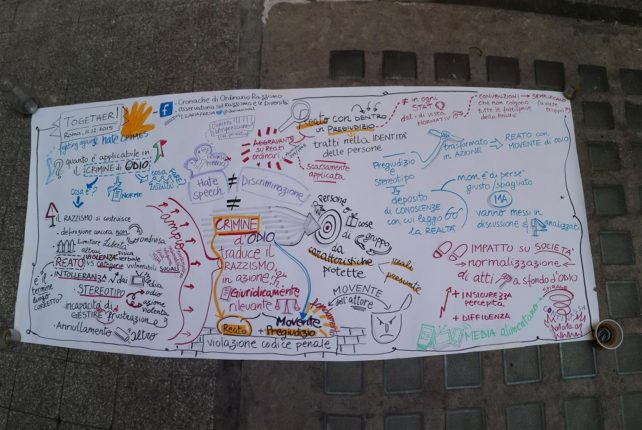 TOGETHER!
ROMA, 11.12.2015
fighting against HATE CRIMES
- Cronache di Ordinario Razzismo
- osservatorio sul Razzismo e le Diversità
quanto è applicabile in
il CRIMINE di ODIO?
COSA è?
NORME
COSA fare?
IL RAZZISMO si costruisce
- definizione ancora non condivisa
Limitare Libertà
altrui
REATO VIOLENZA
vs categorie vulnerabili SOCIALI
INTOLLERANZA
STEREOTIPO
incapacità di
GESTIRE frustrazioni
Annullamento altro
è termine
CORRETTO?
Media
odio
azione
violenta
ampio
Hate
speech
≠
Discriminazione!
≠
AGGRAVANTI
SU REATI
ordinari
reato con DENTRO
un PREGIUDIZIO
tratti nella IDENTITÀ
delle persone
scarsamente
applicata
CRIMINE
d'ODIO
traduce il
RAZZISMO
in azione
Giuridicamente
rilevante
Reato
+ Movente
Pregiudizio
violazione codice penale
persone
cose
gruppo
da
caratteristiche
protette
reali
presunte
MOVENTE
dell'attore
≠ in ogni
STATO
dal p. di vista
NORMATIVO
CONVENZIONI
che non colgono
tutte le fattispecie
della realtà
SEMPLIFICANO
Pregiudizio
e
Stereotipo
trasformato
in AZIONE
REATO con
MOVENTE di ODIO
deposito
di CONOSCENZE
con cui leggo
LA REALTÀ
non è di per sé
giusto/sbagliato
MA
vanno messi in
discussione e analizzati
IMPATTO su SOCIETÀ
normalizzazione
di atti a sfondo d'ODIO
+ INSICUREZZA
percepita
+ DIFFIDENZA
MEDIA alimentano
SPIRALE